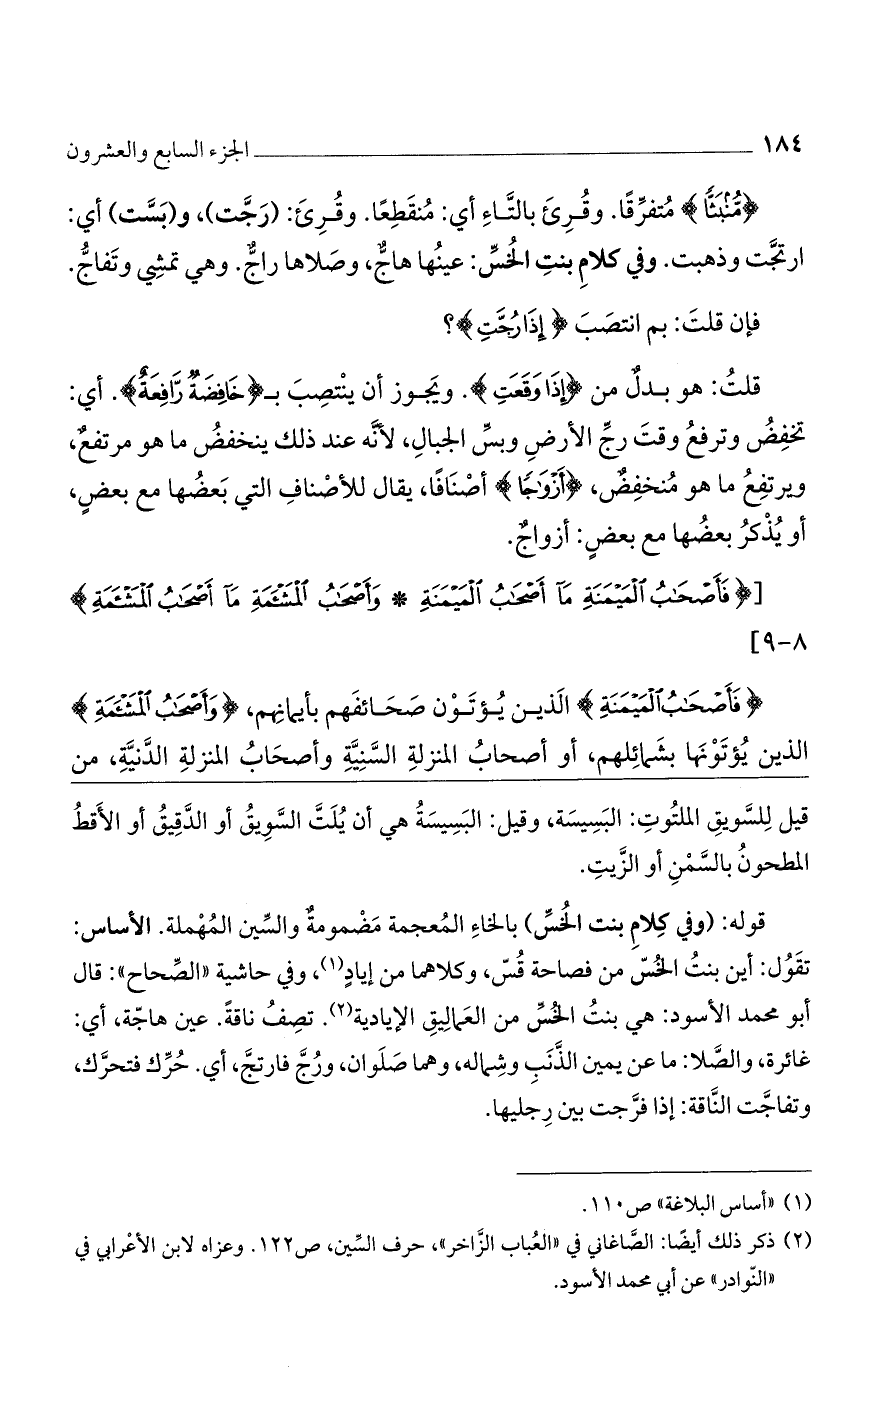 ١٨٤ الجزء السابع والعشرون
﴿مُّنۢبَثًّا﴾ مُتفرِّقًا. وقُرِئَ بالتَّاءِ أي: مُنقَطِعًا. وقُرِئَ: (رَجَّت)، و(بَسَّت) أي:
ارتجَّت وذهبت. وفي كلامِ بنتِ الخُسِّ: عينُها هاجٌّ، وصَلاها راجٌّ. وهي تمشِي وتَفاجُّ.
فإن قلتَ: بم انتصَبَ ﴿إِذَا رُجَّتِ﴾؟
قلتُ: هو بدلٌ من ﴿إِذَا وَقَعَتِ﴾. ويَجوز أن ينْتصِبَ بـ﴿خَافِضَةٌ رَّافِعَةٌ﴾. أي:
تخفِضُ وترفعُ وقتَ رجِّ الأرضِ وبسِّ الجبالِ، لأنَّه عند ذلك ينخفضُ ما هو مرتفعٌ،
ويرتفِعُ ما هو مُنخفِضٌ، ﴿أَزْوَٰجًا﴾ أصْنَافًا، يقال للأصْنافِ التي بَعضُها مع بعضٍ،
أو يُذْكرُ بعضُها مع بعضٍ: أزواجٌ.
[﴿فَأَصْحَٰبُ ٱلْمَيْمَنَةِ مَآ أَصْحَٰبُ ٱلْمَيْمَنَةِ * وَأَصْحَٰبُ ٱلْمَشْـَٔمَةِ مَآ أَصْحَٰبُ ٱلْمَشْـَٔمَةِ﴾
٨-٩]
﴿فَأَصْحَٰبُ ٱلْمَيْمَنَةِ﴾ الَذيـن يُـؤتَـوْن صَحَـائفَهم بأيمانِهم، ﴿وَأَصْحَٰبُ ٱلْمَشْـَٔمَةِ﴾
الذين يُؤتَوْنَها بشَمائِلهم، أو أصحابُ المنزلةِ السَّنِيَّةِ وأصحَابُ المنزلةِ الدَّنيَّةِ، من
قيل لِلسَّويقِ الملتُوتِ: البَسِيسَة، وقيل: البَسِيسَةُ هي أن يُلَتَّ السَّوِيقُ أو الدَّقِيقُ أو الأَقطُ
المطحونُ بالسَّمْنِ أو الزَّيتِ.
قوله: (وفي كِلامِ بنت الخُسِّ) بالخاءِ المُعجمة مَضْمومةٌ والسِّين المُهْملة. الأساس:
تقَوُل: أين بنتُ الخُسّ من فصاحة قُسّ، وكلاهما من إيادٍ(١)، وفي حاشية «الصِّحاح»: قال
أبو محمد الأسود: هي بنتُ الخُسِّ من العَماليقِ الإيادية(٢). تصِفُ ناقةً. عين هاجّة، أي:
غائرة، والصَّلا: ما عن يمين الذَّنَبِ وشِماله، وهما صَلَوان، ورُجَّ فارتجَّ، أي. حُرِّك فتحرَّك،
وتفاجَّت النَّاقة: إذا فرَّجت بين رِجليها.
(١) «أساس البلاغة» ص١١٠.
(٢) ذكر ذلك أيضًا: الصَّاغاني في «العُباب الزَّاخر»، حرف السِّين، ص١٢٢. وعزاه لابن الأعْرابي في
«النّوادر» عن أبي محمد الأسود.